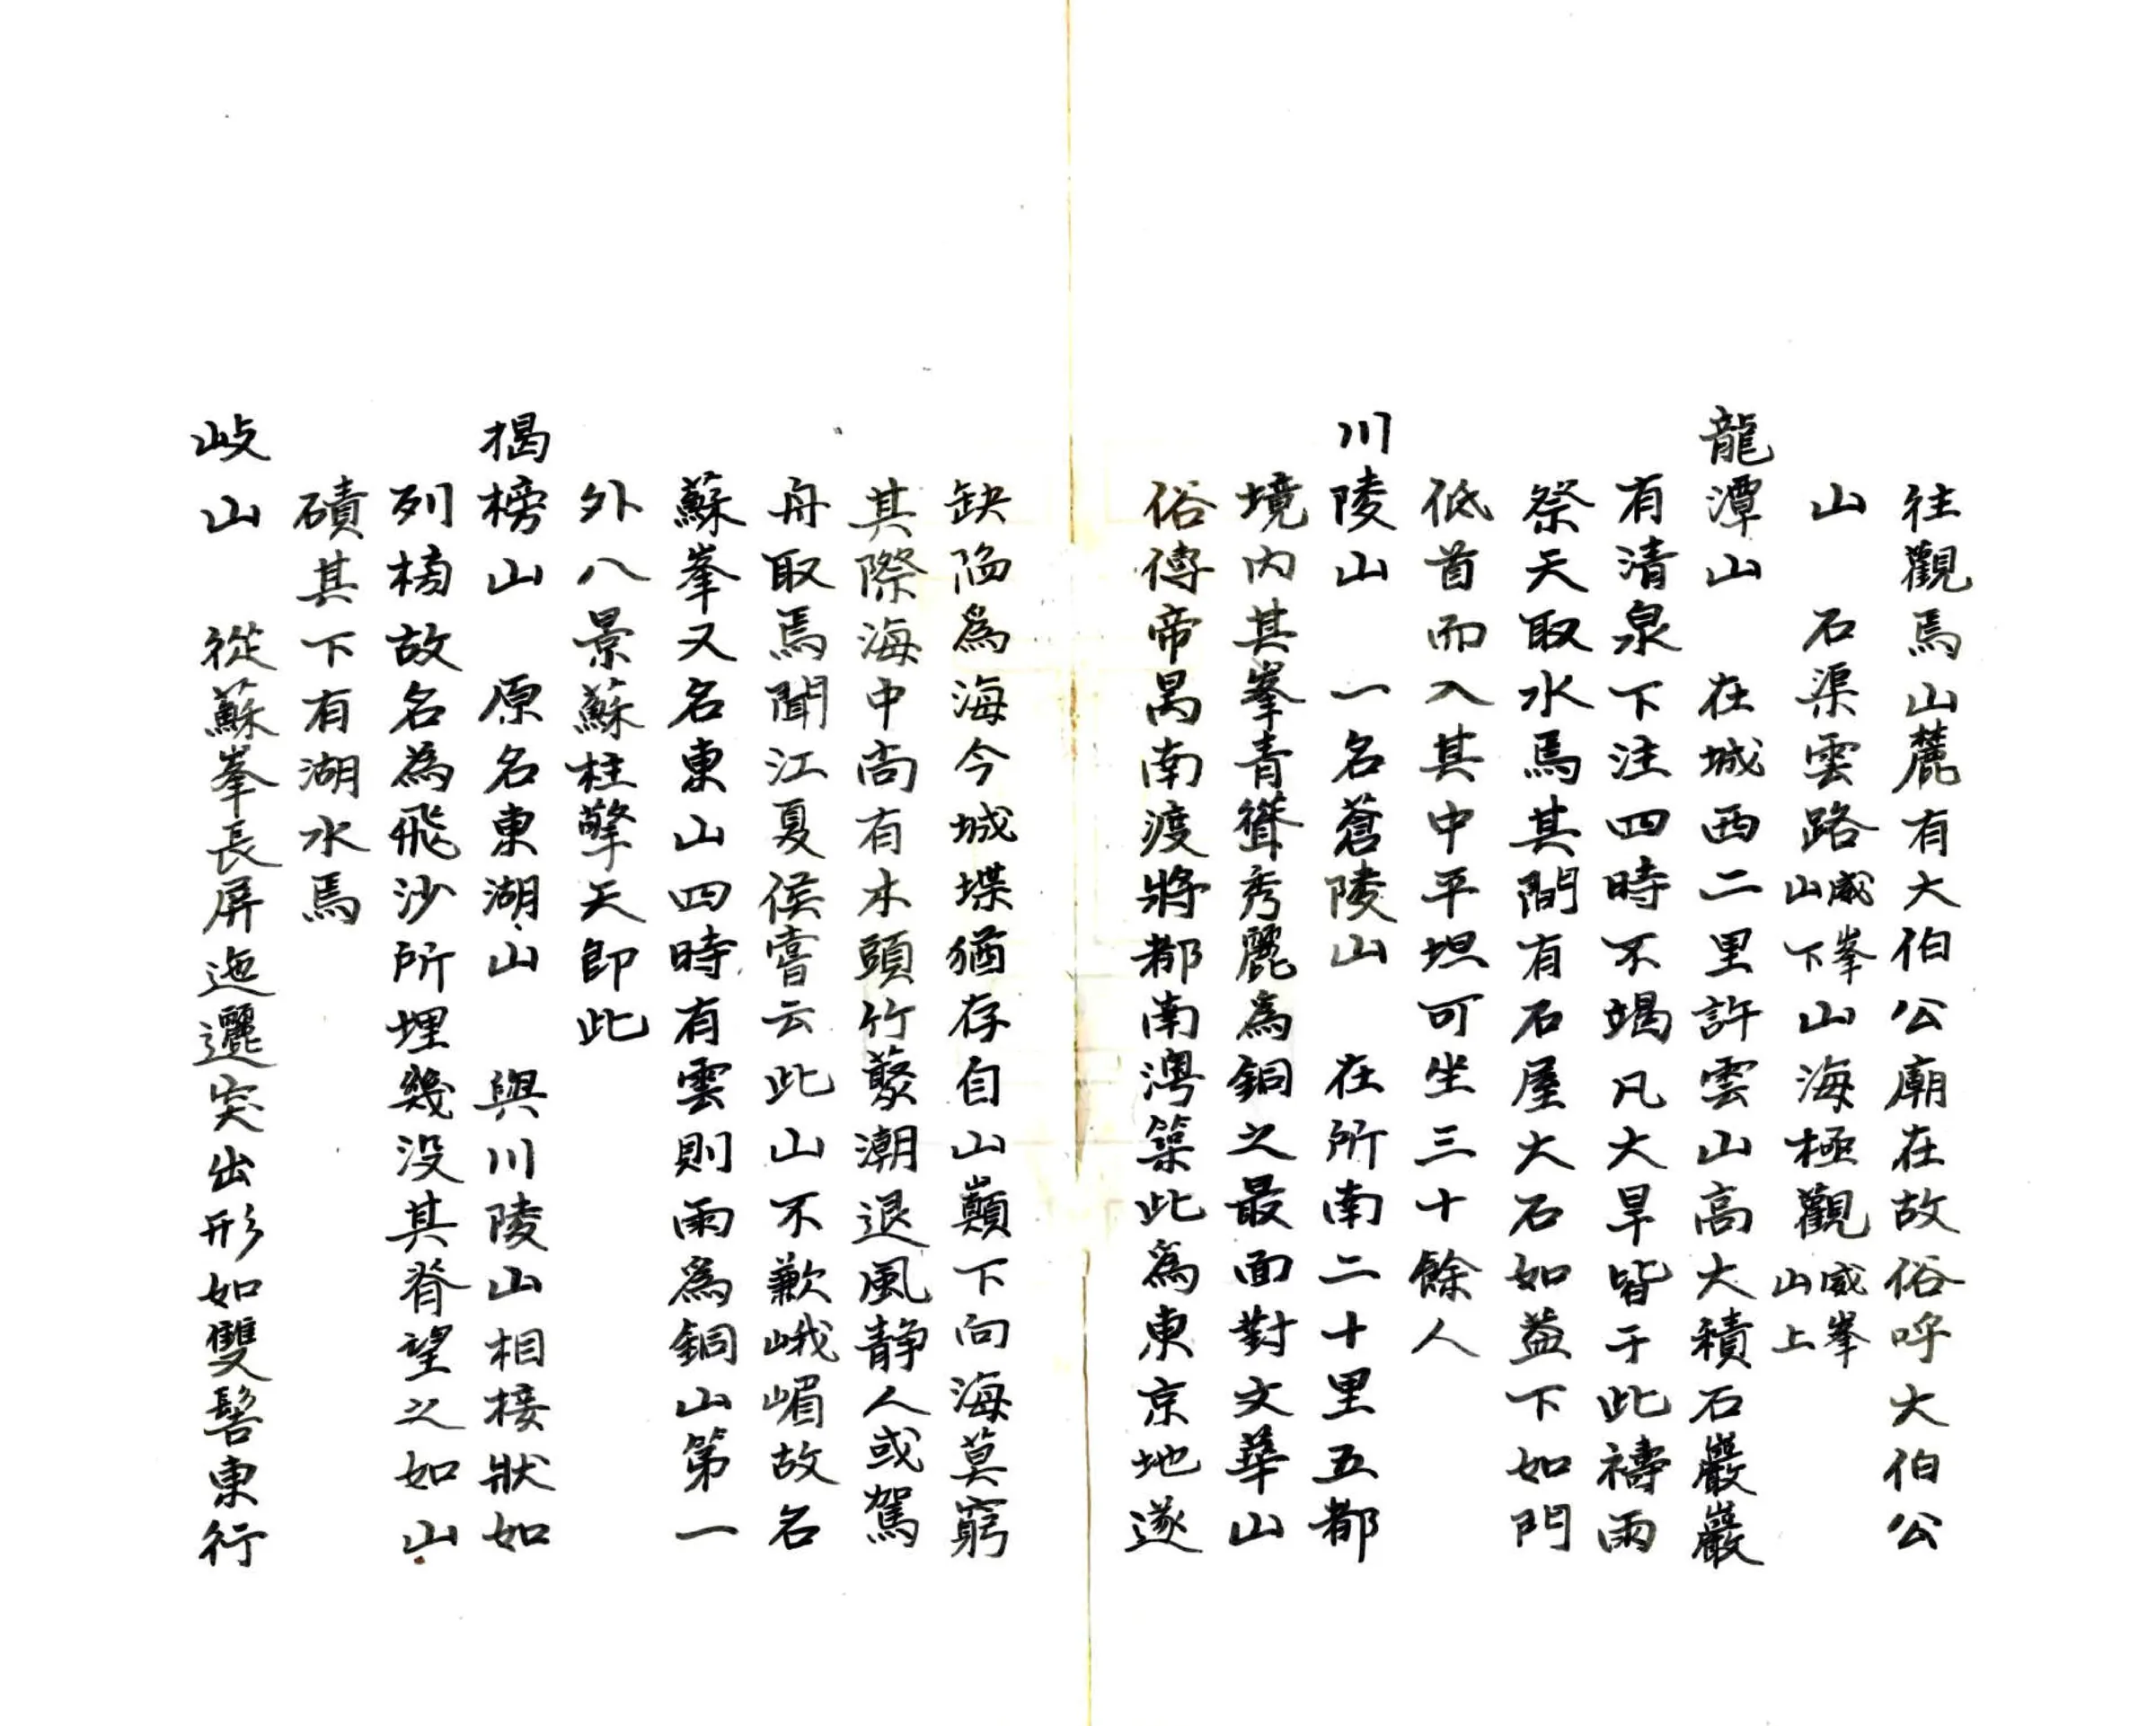 往觀焉山麓有大伯公廟在故俗呼大伯公
山　石渠雲路山下峯咸山海極觀山上咸峯
龍潭山　在城西二里許雲山高大積石巖巖
有清泉下注四時不竭凡大旱皆于此禱雨
祭天取水焉其間有石屋大石如蓋下如門
低首而入其中平坦可坐三十餘人
川陵山　一名蒼陵山　在所南二十里五都
境内其峯青聳秀麗為銅之最面對文華山
俗傳帝昺南渡將都南澳築此為東京地遂
缺陷為海今城堞猶存自山巔下向海莫窮
其際海中尚有木頭竹藂潮退風静人或駕
舟取焉聞江夏侯嘗云此山不歉峨嵋故名
蘇峯又名東山四時有雲則雨為銅山第一
外八景蘇柱擎天即此
揭榜山　原名東湖山　與川陵山相接狀如
列榜故名為飛沙所埋幾没其脊望之如山
磧其下有湖水焉
岐山　從蘇峯長屏迤邐突出形如雙髻東行